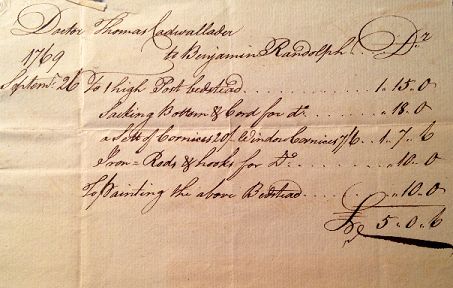 Doctor Thomas Cadwallader Dr
1769 to Benjamin Randolph
Septemr. 26 To 1 high Post bedstead 1..15..0
Sacking Bottom & Cord for do. ..18..0
a Sett of Cornices 20/. Window Cornices 7/6 1..7..6
Iron = Rods & hooks for Do. ..10..0
To Painting the above Bedstead ..10..0
£ 5..0..6